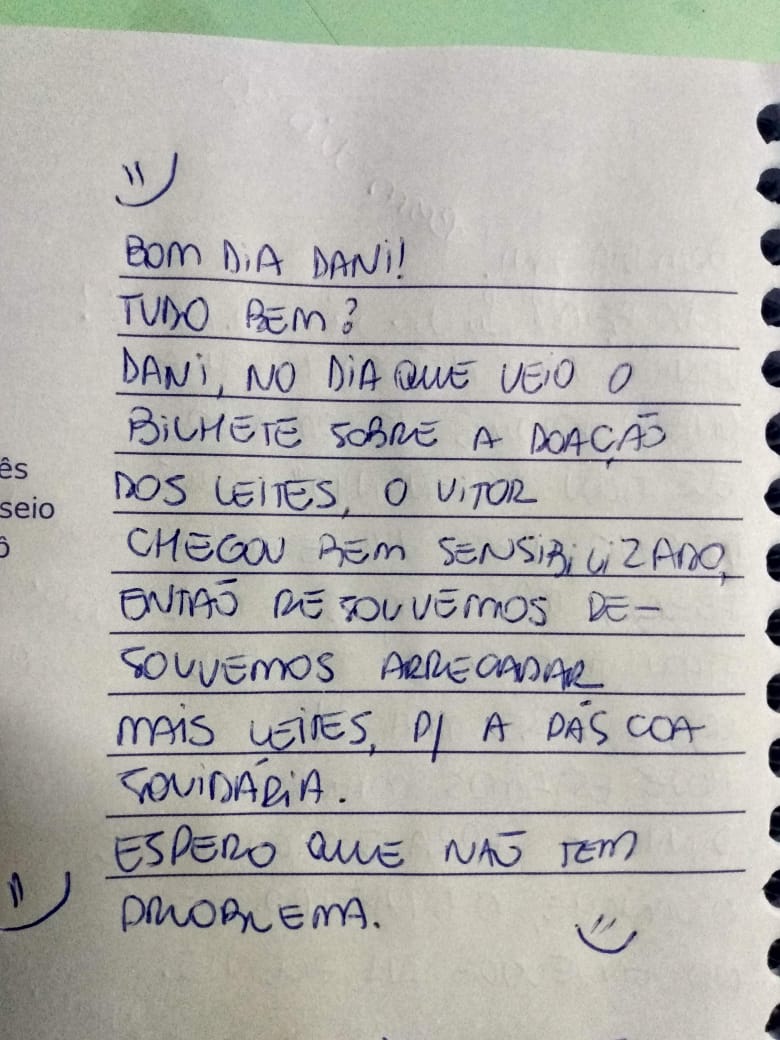 BOM DIA DANI!
TUDO BEM?
DANI, NO DIA QUE VEIO O
BILHETE SOBRE A DOAÇÃO
DOS LEITES, O VITOR
CHEGOU BEM SENSIBILIZADO,
ENTÃO RESOLVEMOS DE-
SOLVEMOS ARRECADAR
MAIS LEITES, P/ A PÁSCOA
SOLIDÁRIA.
ESPERO QUE NÃO TEM
PROBLEMA.
ês
seio
ô